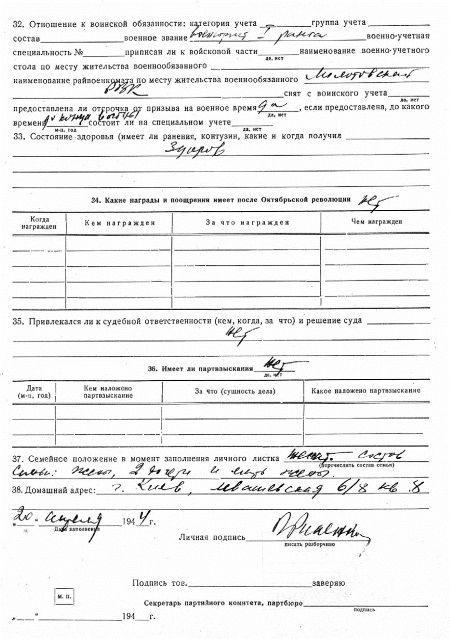 32. Отношение к воинской обязанности: категория учета I группа учета
состав военное звание I ранга военно-учетная
специальность № приписан ли к войсковой части наименование военно-учетного
да, нет
стола по месту жительства военнообязанного
наименование райвоенкомата по месту жительства военнообязанного Молотовский
РВК снят с воинского учета
да, нет
предоставлена ли отсрочка от призыва на военное время да, если предоставлена, до какого
да, нет
времени до конца войны состоит ли на специальном учете
м-ц, год да, нет
33. Состояние здоровья (имеет ли ранения, контузии, какие и когда получил
Здоров
34. Какие награды и поощрения имеет после Октябрьской революции нет
Когда награжден Кем награжден За что награжден Чем награжден
35. Привлекался ли к судебной ответственности (кем, когда, за что) и решение суда
нет
36. Имеет ли партвзыскания нет
да, нет
Дата (м-ц, год) Кем наложено партвзыскание За что (сущность дела) Какое наложено партвзыскание
37. Семейное положение в момент заполнения личного листка женат. Состав
(перечислить состав семьи)
семьи: жены, 2 дочери и мать жены.
38. Домашний адрес: г. Киев, 6/8 кв. 8
„20„ апреля 1944 г.
Дата заполнения
Личная подпись
писать разборчиво
Подпись тов. заверяю
м. п.
Секретарь партийного комитета, партбюро
подпись
„ “ 194 г.